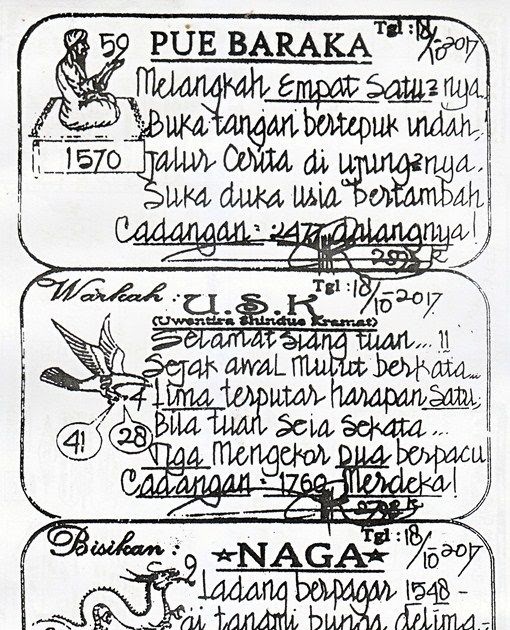 59 PUE BARAKA Tgl: 18/10-2017
Melangkah Empat Satu2 nya
Buka tangan bertepuk indah,
1570 Jalur Cerita di ujung2nya.
Suka duka usia bertambah
Cadangan: 2477 dalangnya!
Warkah: U.S.K Tgl: 18/10-2017
(Uwentira Shindue Kramat)
Selamat siang tuan... !!
Sejak awal mulut berkata...
4 Lima terputar harapan Satu;
41 28 Bila tuan Seia Sekata...
Tiga Mengekor Dua berpacu
Cadangan: 1760 Merdeka!
Bisikan: ★NAGA★ Tgl: 18/10-2017
2 Ladang berpagar 1548 -
bunga delima.-